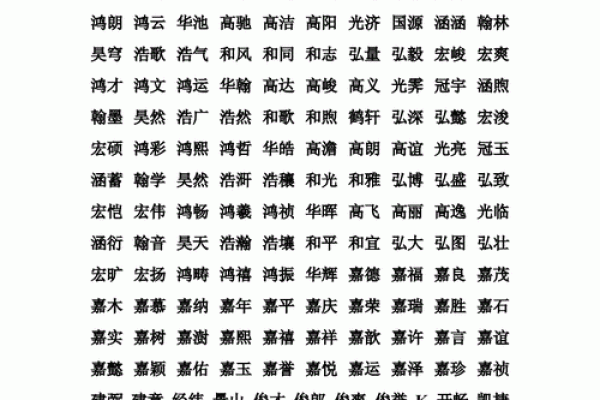 鸿朗 鸿云 华池 高驰 高洁 高阳 光济 国源 涵涵 翰林
昊穹 浩歌 浩气 和风 和同 和志 弘量 弘毅 宏峻 宏爽
鸿才 鸿文 鸿运 华翰 高达 高峻 高义 光霁 冠宇 涵煦
翰墨 昊然 浩广 浩然 和歌 和煦 鹤轩 弘深 弘懿 宏浚
宏硕 鸿彩 鸿熙 鸿哲 华皓 高澹 高朗 高谊 光亮 冠玉
涵蓄 翰学 昊然 浩浒 浩穰 和光 和雅 弘博 弘盛 弘致
宏恺 宏伟 鸿畅 鸿羲 鸿祯 华晖 高飞 高丽 高逸 光临
涵衍 翰音 昊天 浩瀚 浩壤 和平 和宜 弘大 弘图 弘壮
宏旷 宏扬 鸿畴 鸿禧 鸿振 华辉 嘉德 嘉福 嘉良 嘉茂
嘉木 嘉慕 嘉纳 嘉年 嘉平 嘉庆 嘉荣 嘉瑞 嘉胜 嘉石
嘉实 嘉树 嘉澍 嘉熙 嘉禧 嘉祥 嘉歆 嘉许 嘉言 嘉谊
嘉懿 嘉颖 嘉佑 嘉玉 嘉誉 嘉悦 嘉运 嘉泽 嘉珍 嘉祯